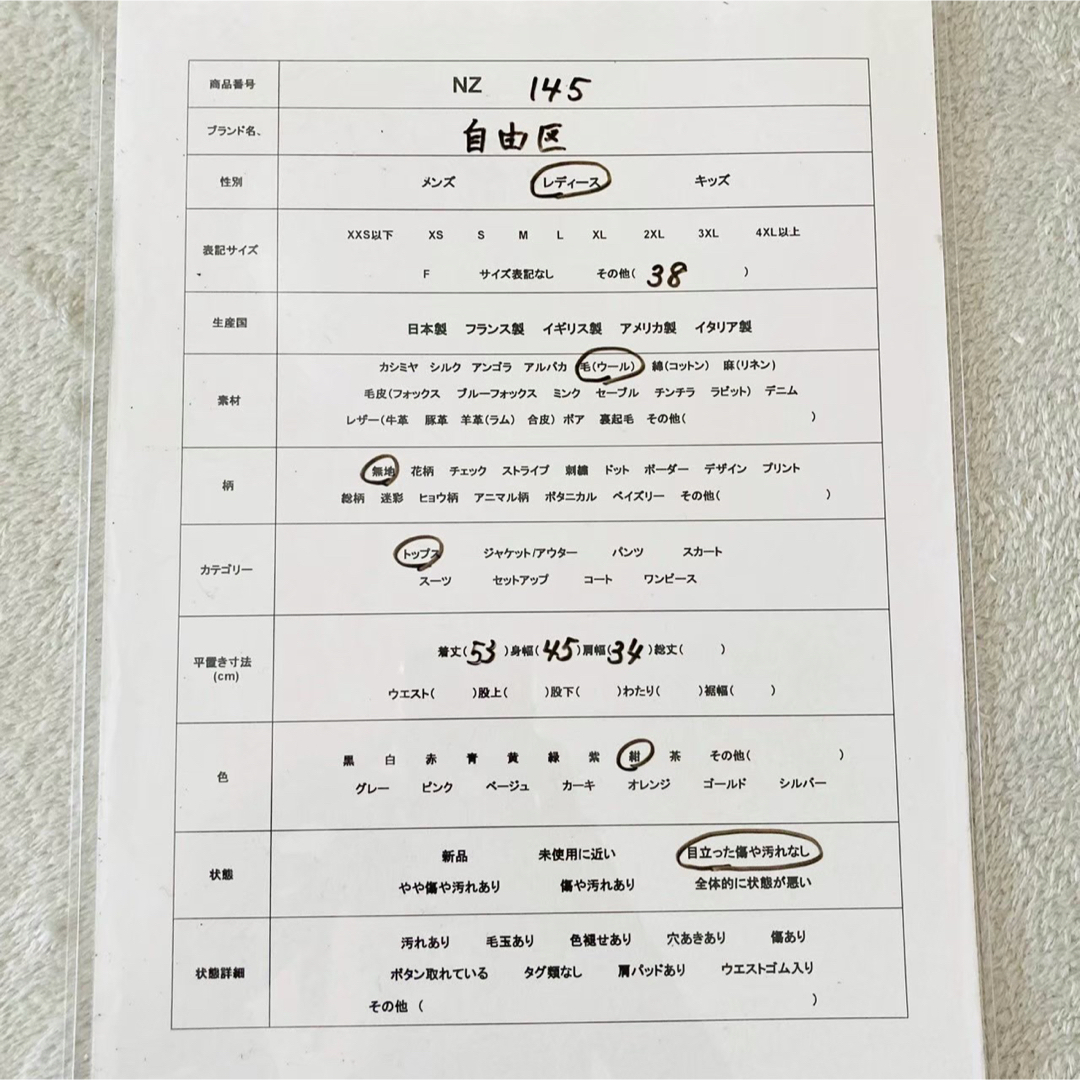 商品番号 NZ 145
ブランド名、 自由区
性別 メンズ レディース キッズ
XXS以下 XS S M L XL 2XL 3XL 4XL以上
表記サイズ
F サイズ表記なし その他( 38 )
生産国 日本製 フランス製 イギリス製 アメリカ製 イタリア製
カシミヤ シルク アンゴラ アルパカ 毛(ウール) 綿(コットン) 麻(リネン)
素材 毛皮(フォックス ブルーフォックス ミンク セーブル チンチラ ラビット) デニム
レザー(牛革 豚革 羊革(ラム) 合皮) ボア 裏起毛 その他( )
無地 花柄 チェック ストライプ 刺繍 ドット ボーダー デザイン プリント
柄
総柄 迷彩 ヒョウ柄 アニマル柄 ボタニカル ペイズリー その他( )
トップス ジャケット/アウター パンツ スカート
カテゴリー
スーツ セットアップ コート ワンピース
着丈( 53 )身幅( 45 )肩幅( 34 )総丈( )
平置き寸法
(cm)
ウエスト( )股上( )股下( )わたり( )裾幅( )
黒 白 赤 青 黄 緑 紫 紺 茶 その他( )
色
グレー ピンク ベージュ カーキ オレンジ ゴールド シルバー
新品 未使用に近い 目立った傷や汚れなし
状態
やや傷や汚れあり 傷や汚れあり 全体的に状態が悪い
汚れあり 毛玉あり 色褪せあり 穴あきあり 傷あり
状態詳細 ボタン取れている タグ類なし 肩パッドあり ウエストゴム入り
その他 ( )